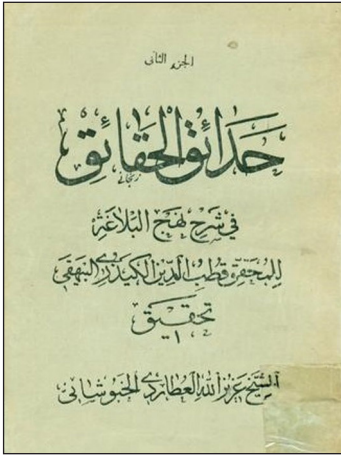 الجزء الثانی
حَدَائقُ الحَقَائق
فی شَرح نَهج البَلاغَة
للمُحَقِّق قُطب الدّین الکیدری البیهقی
تحقیق
الشَّیخ عَزیزُ الله العطاردی الخبوشانی